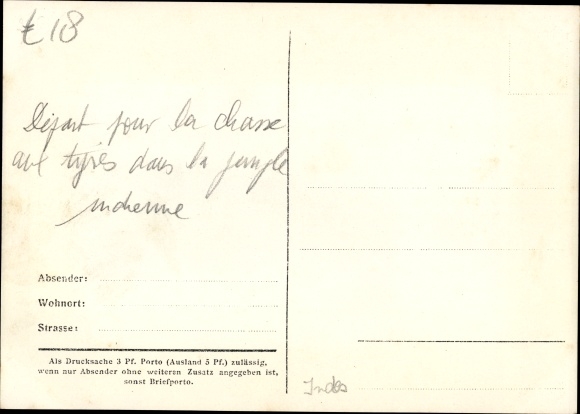 €18
Départ pour la chasse
aux tigres dans la jungle
indienne
Absender:
Wohnort:
Strasse:
Als Drucksache 3 Pf. Porto (Ausland 5 Pf.) zulässig,
wenn nur Absender ohne weiteren Zusatz angegeben ist,
sonst Briefporto.
Indes